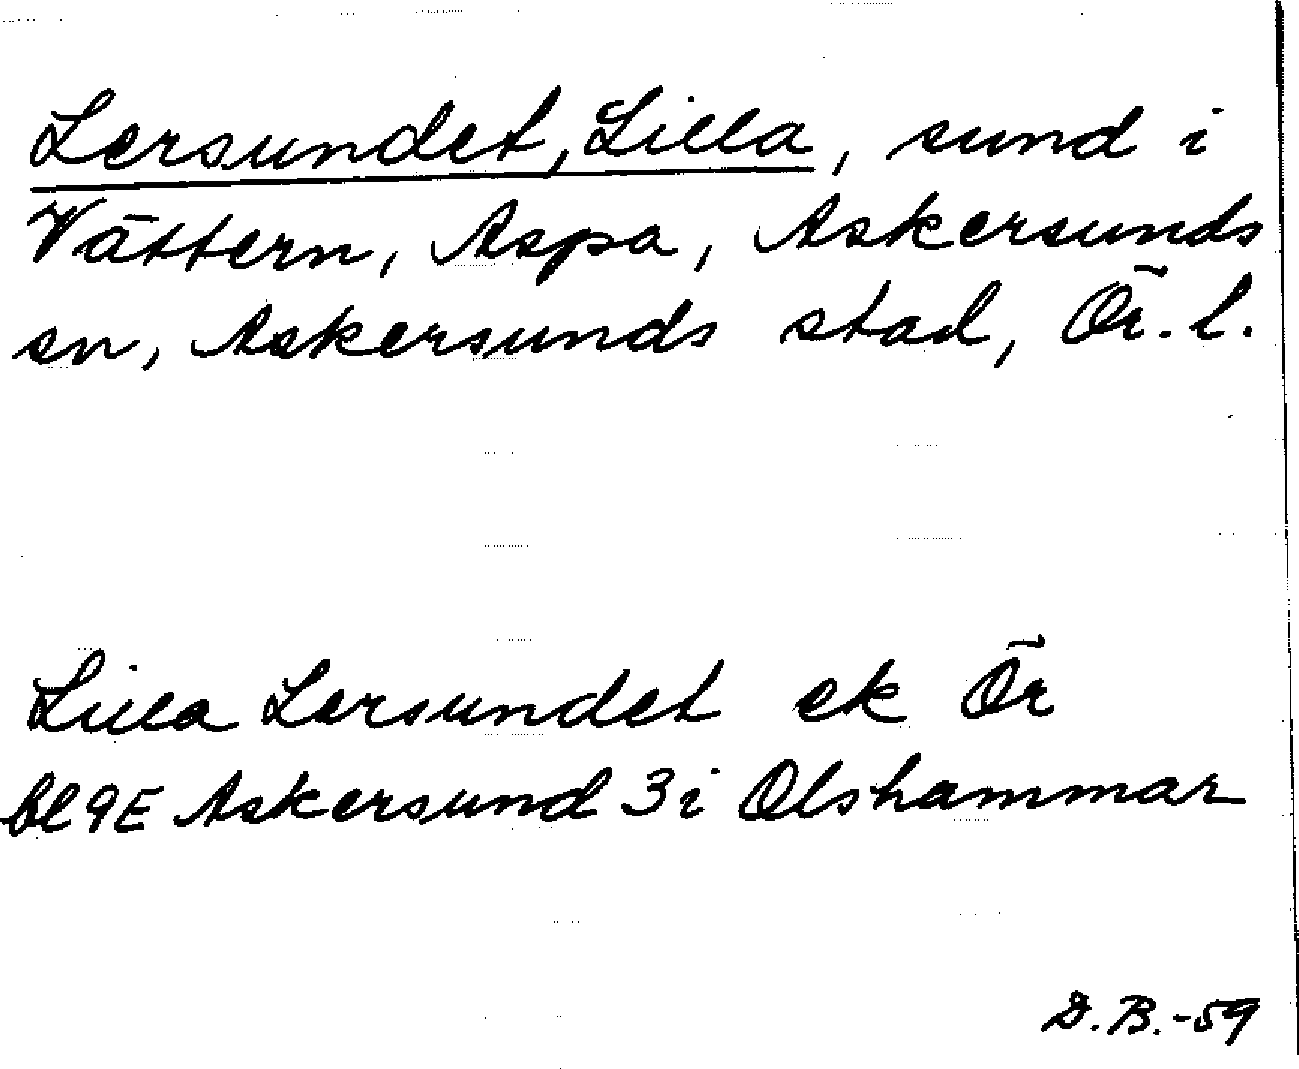 Lersundet, Lilla, sund i
Vättern, Aspa, Askersunds
sn, Askersunds stad, Ör. l.
Lilla Lersundet ek Ör
bl 9E Askersund 3i Olshammar
D.B.-59